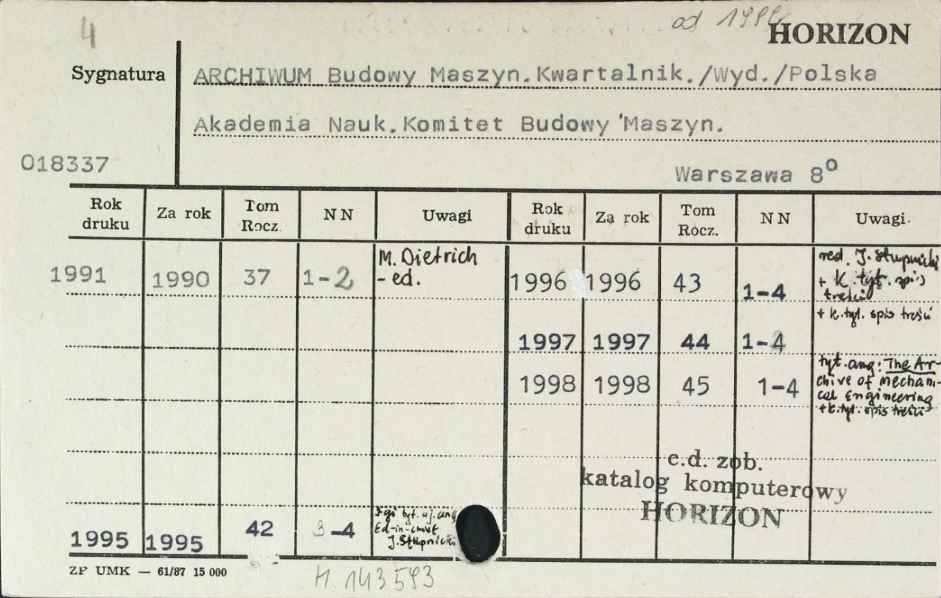 4
od 199
HORIZON
Sygnatura
ARCHIWUM Budowy Maszyn.Kwartalnik./Wyd./Polska
Akademia Nauk.Komitet Budowy Maszyn.
018337
Warszawa 8º
Rok druku Za rok Tom Rocz. N N Uwagi Rok druku Za rok Tom Rocz. N N Uwagi
1991 1990 37 1-2 M. Dietrich - ed. 1996 1996 43 1-4 red. J. Stupnicki + k. tyt. spis treści
1997 1997 44 1-4 + k. tyt. spis treści
1998 1998 45 1-4 tyt. ang: The Archive of Mechanical Engineering + k. tyt. spis treści
c.d. zob.
katalog komputerowy
HORIZON
1995 1995 42 3-4 tyt. Ed-in-chief J. Stupnicki
ZP UMK — 61/87 15 000
H. 143593